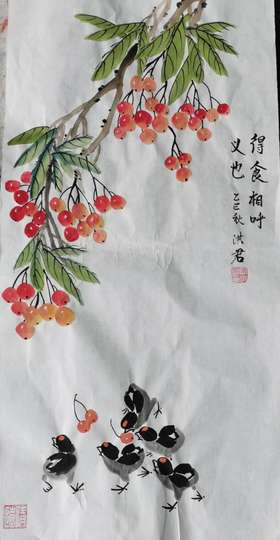 得食相呼
义也
乙巳秋洪君